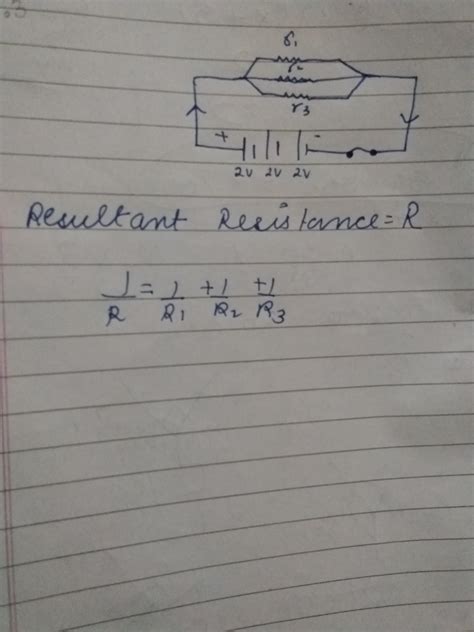 r1
r2
r3
+ -
2V 2V 2V
Resultant Resistance = R
1/R = 1/R1 + 1/R2 + 1/R3